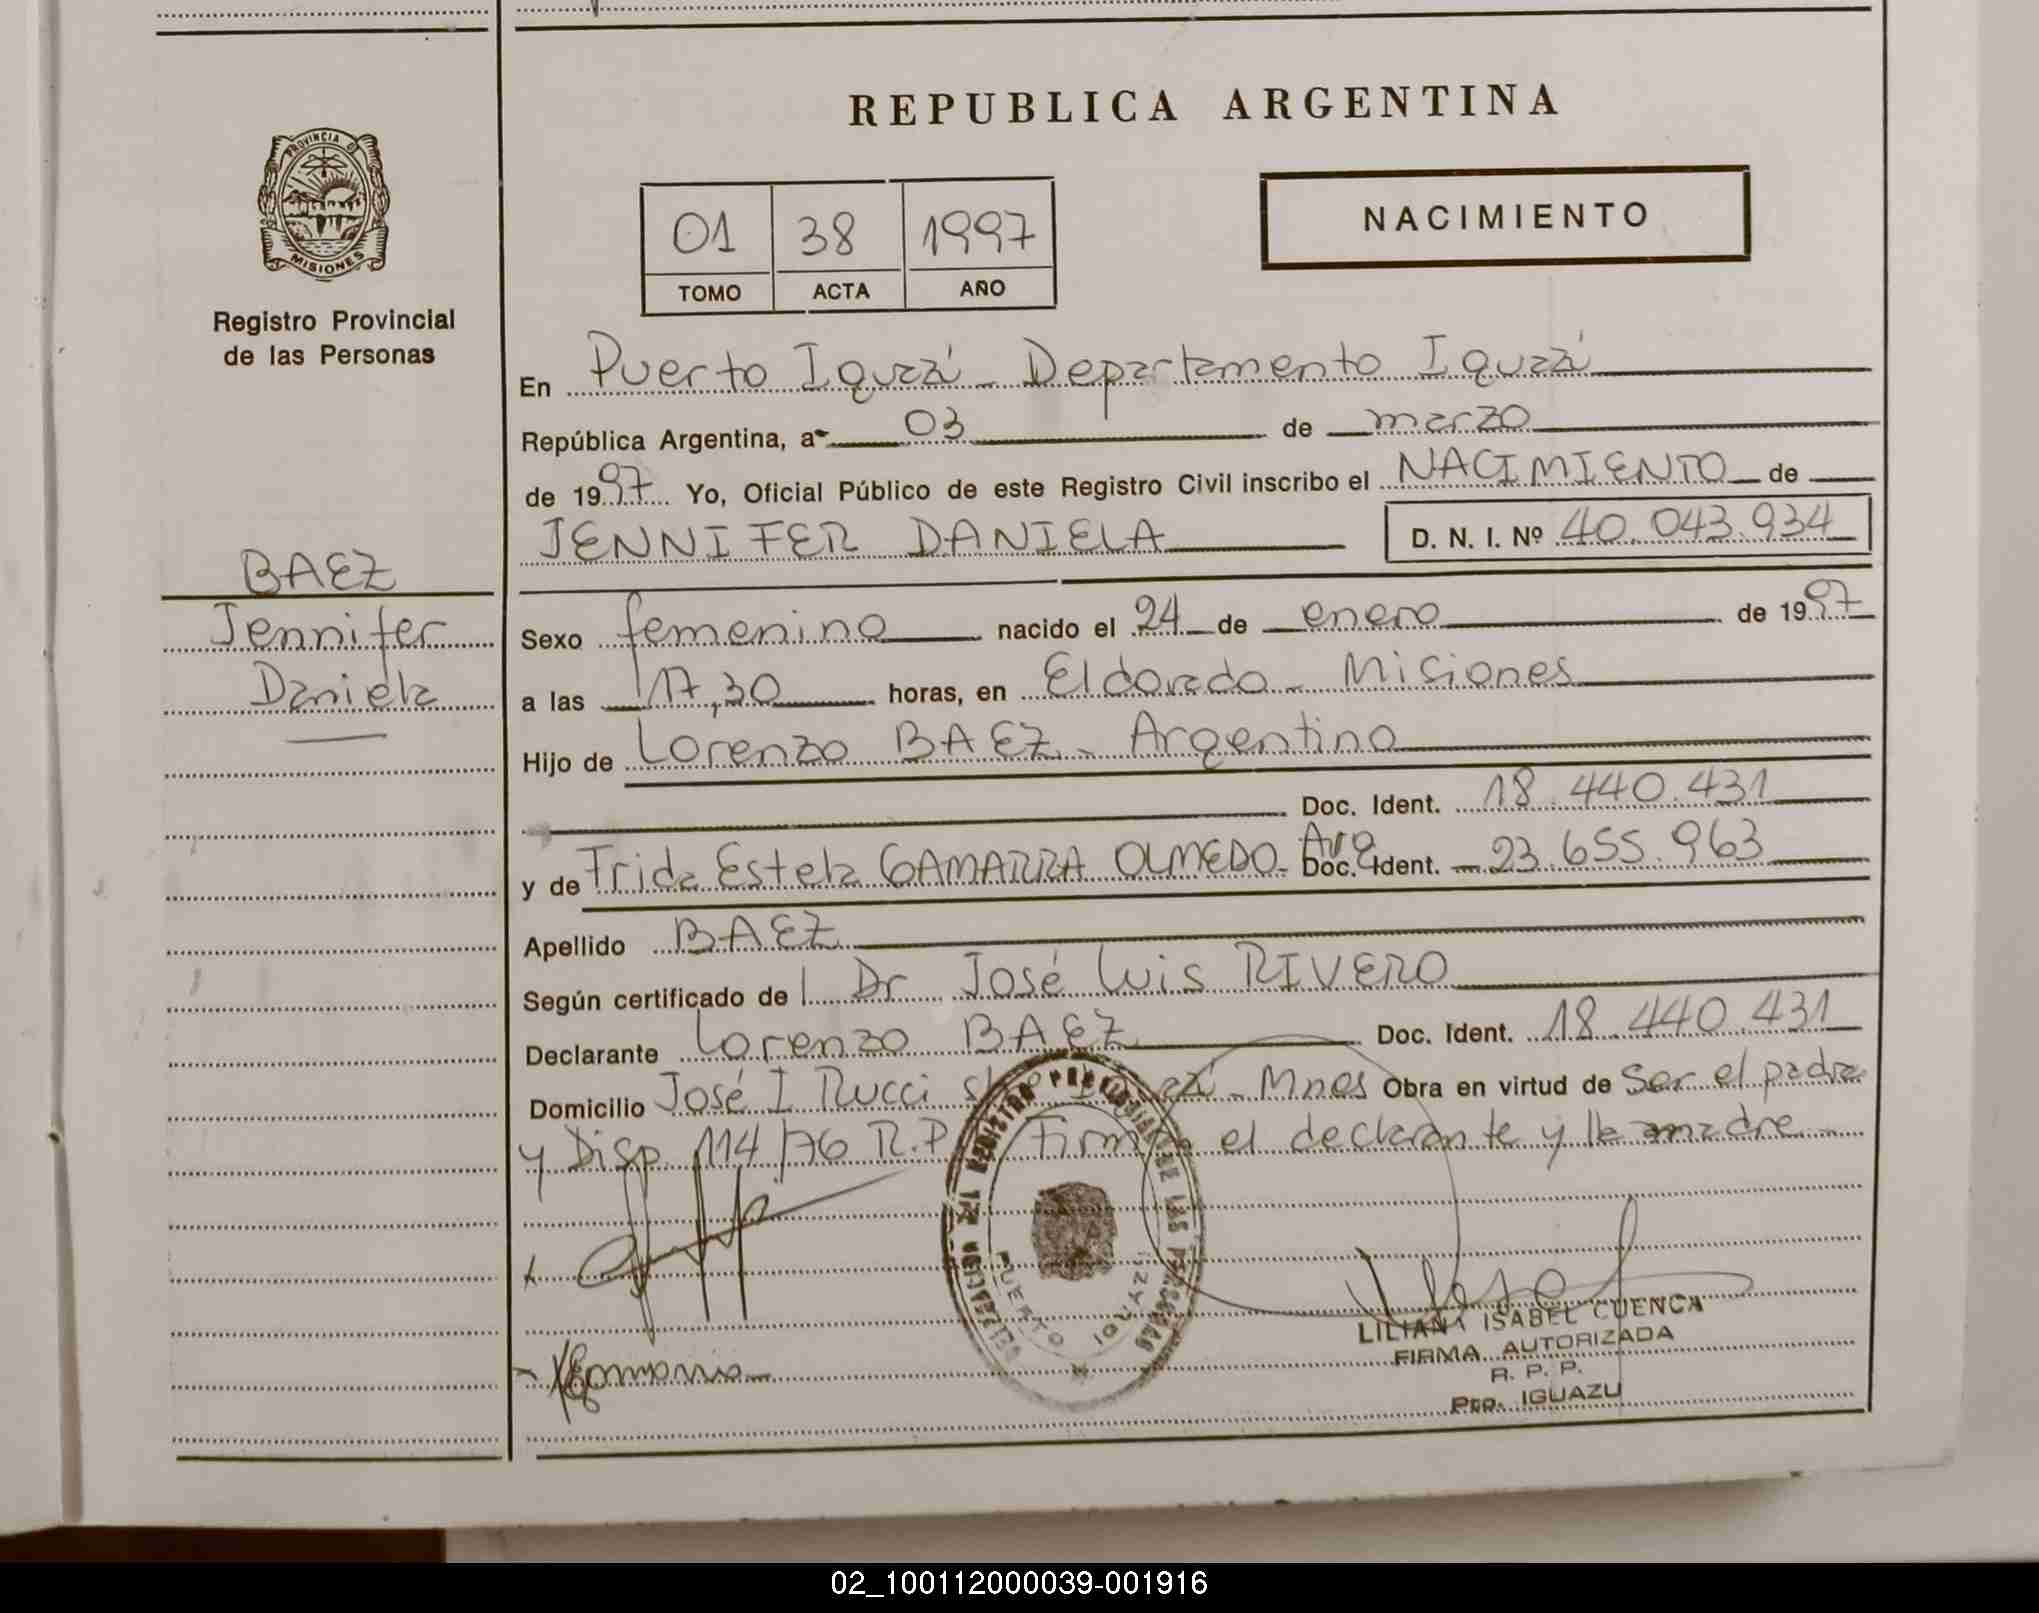 REPUBLICA ARGENTINA
PROVINCIA DE
MISIONES
Registro Provincial
de las Personas
01 38 1997
TOMO ACTA AÑO
NACIMIENTO
En Puerto Iguazú - Departamento Iguazú
República Argentina, a 03 de marzo
de 1997 Yo, Oficial Público de este Registro Civil inscribo el NACIMIENTO de
JENNIFER DANIELA D. N. I. Nº 40.043.934
BAEZ
Jennifer
Daniela
Sexo femenino nacido el 24 de enero de 1997
a las 17,30 horas, en Eldorado - Misiones
Hijo de Lorenzo BAEZ - Argentino
Doc. Ident. 18.440.431
y de Frida Estela GAMARRA OLMEDO - Arg Doc. Ident. 23.655.963
Apellido BAEZ
Según certificado de l Dr José Luis RIVERO
Declarante Lorenzo BAEZ Doc. Ident. 18.440.431
Domicilio José I Rucci - Mnes Obra en virtud de Ser el padre
y Disp. 114/76 R.P. Firman el declarante y la madre -
REGISTRO PROVINCIAL DE LAS PERSONAS
PUERTO
LILIANA ISABEL CUENCA
FIRMA AUTORIZADA
R. P. P.
Pto. IGUAZU
02_100112000039-001916